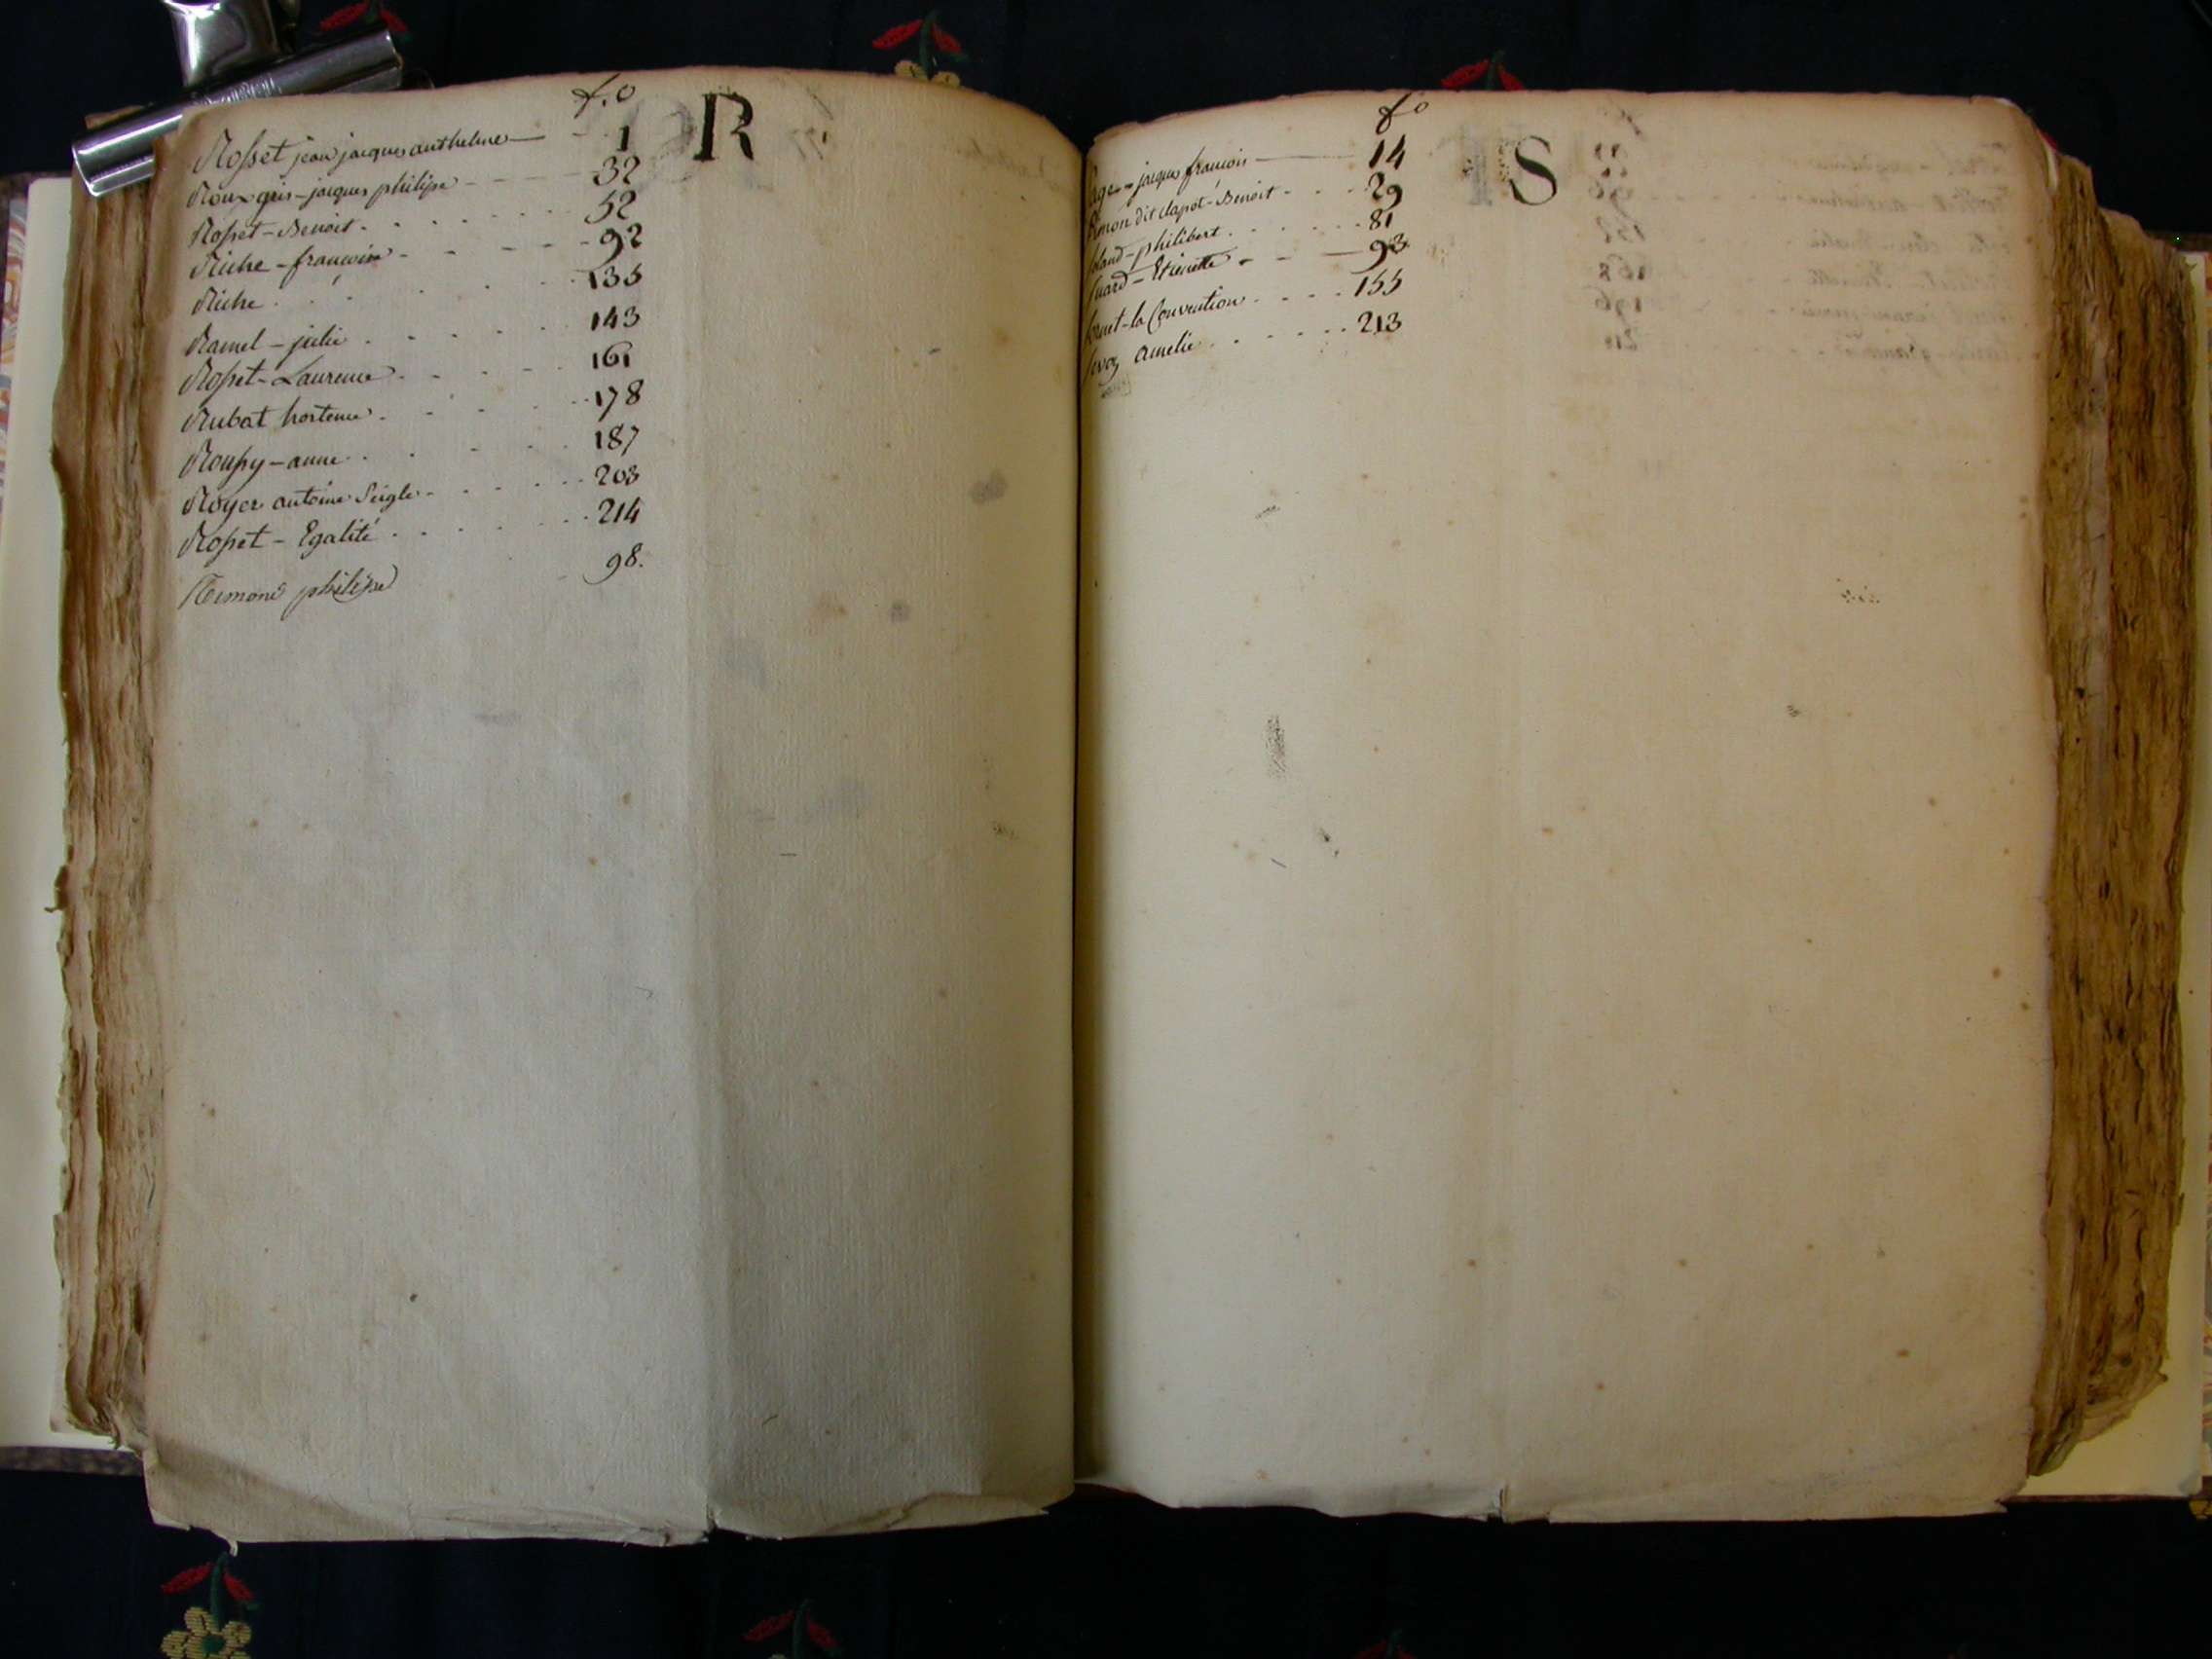 f.o R
Rosset jean jacques anthelme — 1
Roux gris - jacques philipe - 32
Rosset - Benoit - 52
Riche - francoise - 92
Riche . 135
Ramel - julie . 143
Rosset - Laurence - 161
Rubat hortense . 178
Roussy - anne . 187
Royer antoine Seigle - 203
Rosset - Egalité . 214
Remond philipe 98.
fo S
Sage - jacques francois — 14
Simon dit clapot - Benoit - 29
Soland - philibert . 81
Suard - Etienette - 93
Sornet - la Convention . 155
Savoy amelie . 213